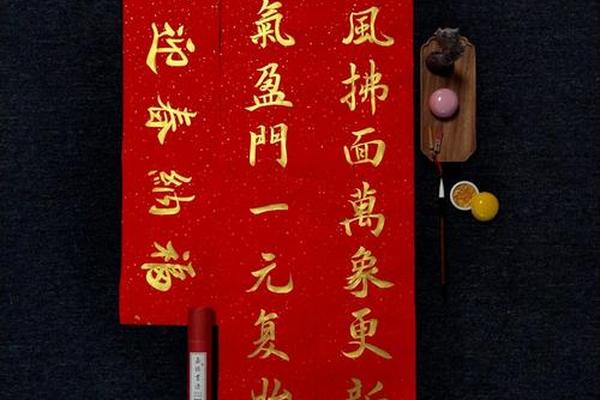 風拂面萬象更新
氣盈門一元复始
迎春納福